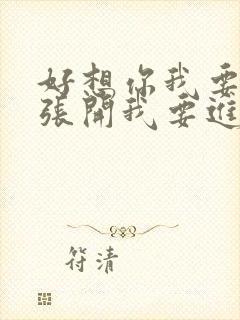 好想你我要
張開我要進
符清